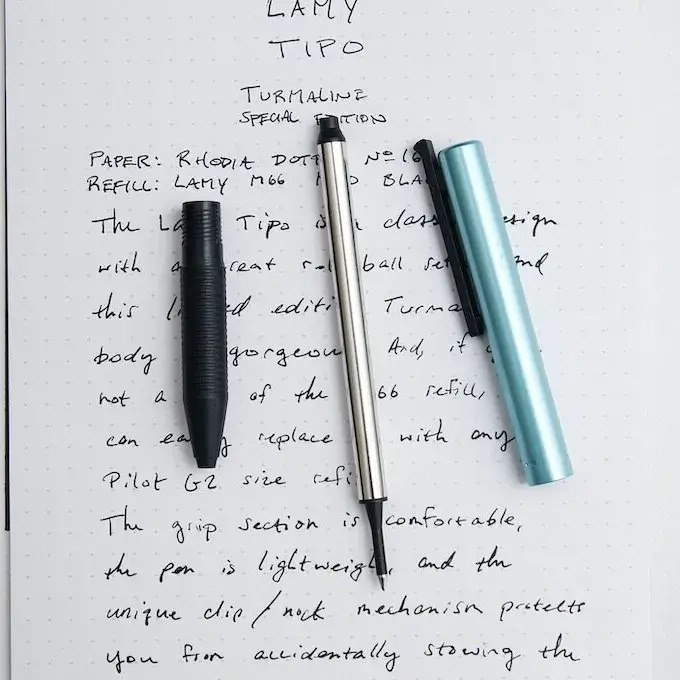 LAMY
TIPO
TURMALINE
SPECIAL EDITION
PAPER: RHODIA Nº 16
REFILL: LAMY M66
The Tipo is a design
with a great ball and
this limited edition
body gorgeous. And, if
not a of the 66 refill,
can easily replace with any
Pilot G2 size
The grip section is comfortable,
the pen is lightweight, and the
unique clip/nock mechanism protects
you from accidentally stowing the